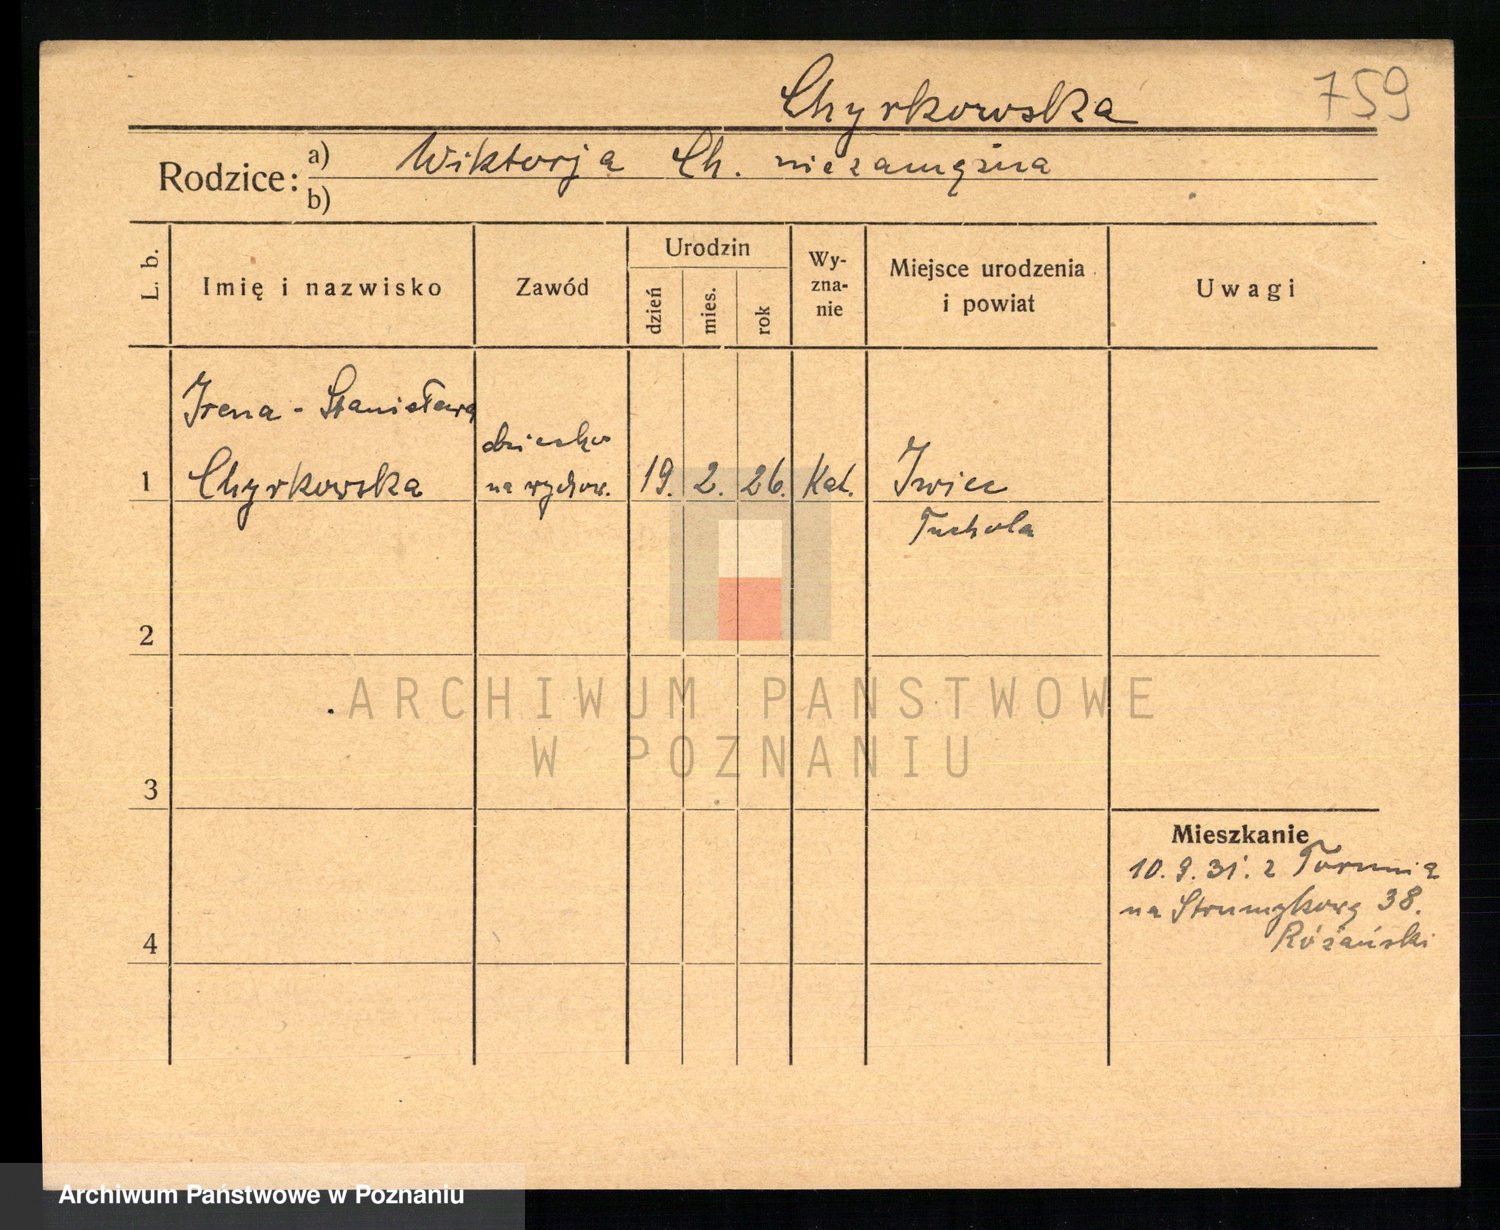 Chyrkowska
759
Rodzice:
a) Wiktorja Ch. niezamężna
b)
L. b.
Imię i nazwisko
Zawód
Urodzin
dzień
mies.
rok
Wy-
zna-
nie
Miejsce urodzenia
i powiat
Uwagi
Irena - Stanisława
dziecko
1 Chyrkowska na wychow. 19. 2. 26. Kat. Iwiec
Tuchola
2
ARCHIWUM PAŃSTWOWE
W POZNANIU
3
Mieszkanie
10. 9. 31. z Torunia
na Strumykową 38.
Różański
4
Archiwum Państwowe w Poznaniu